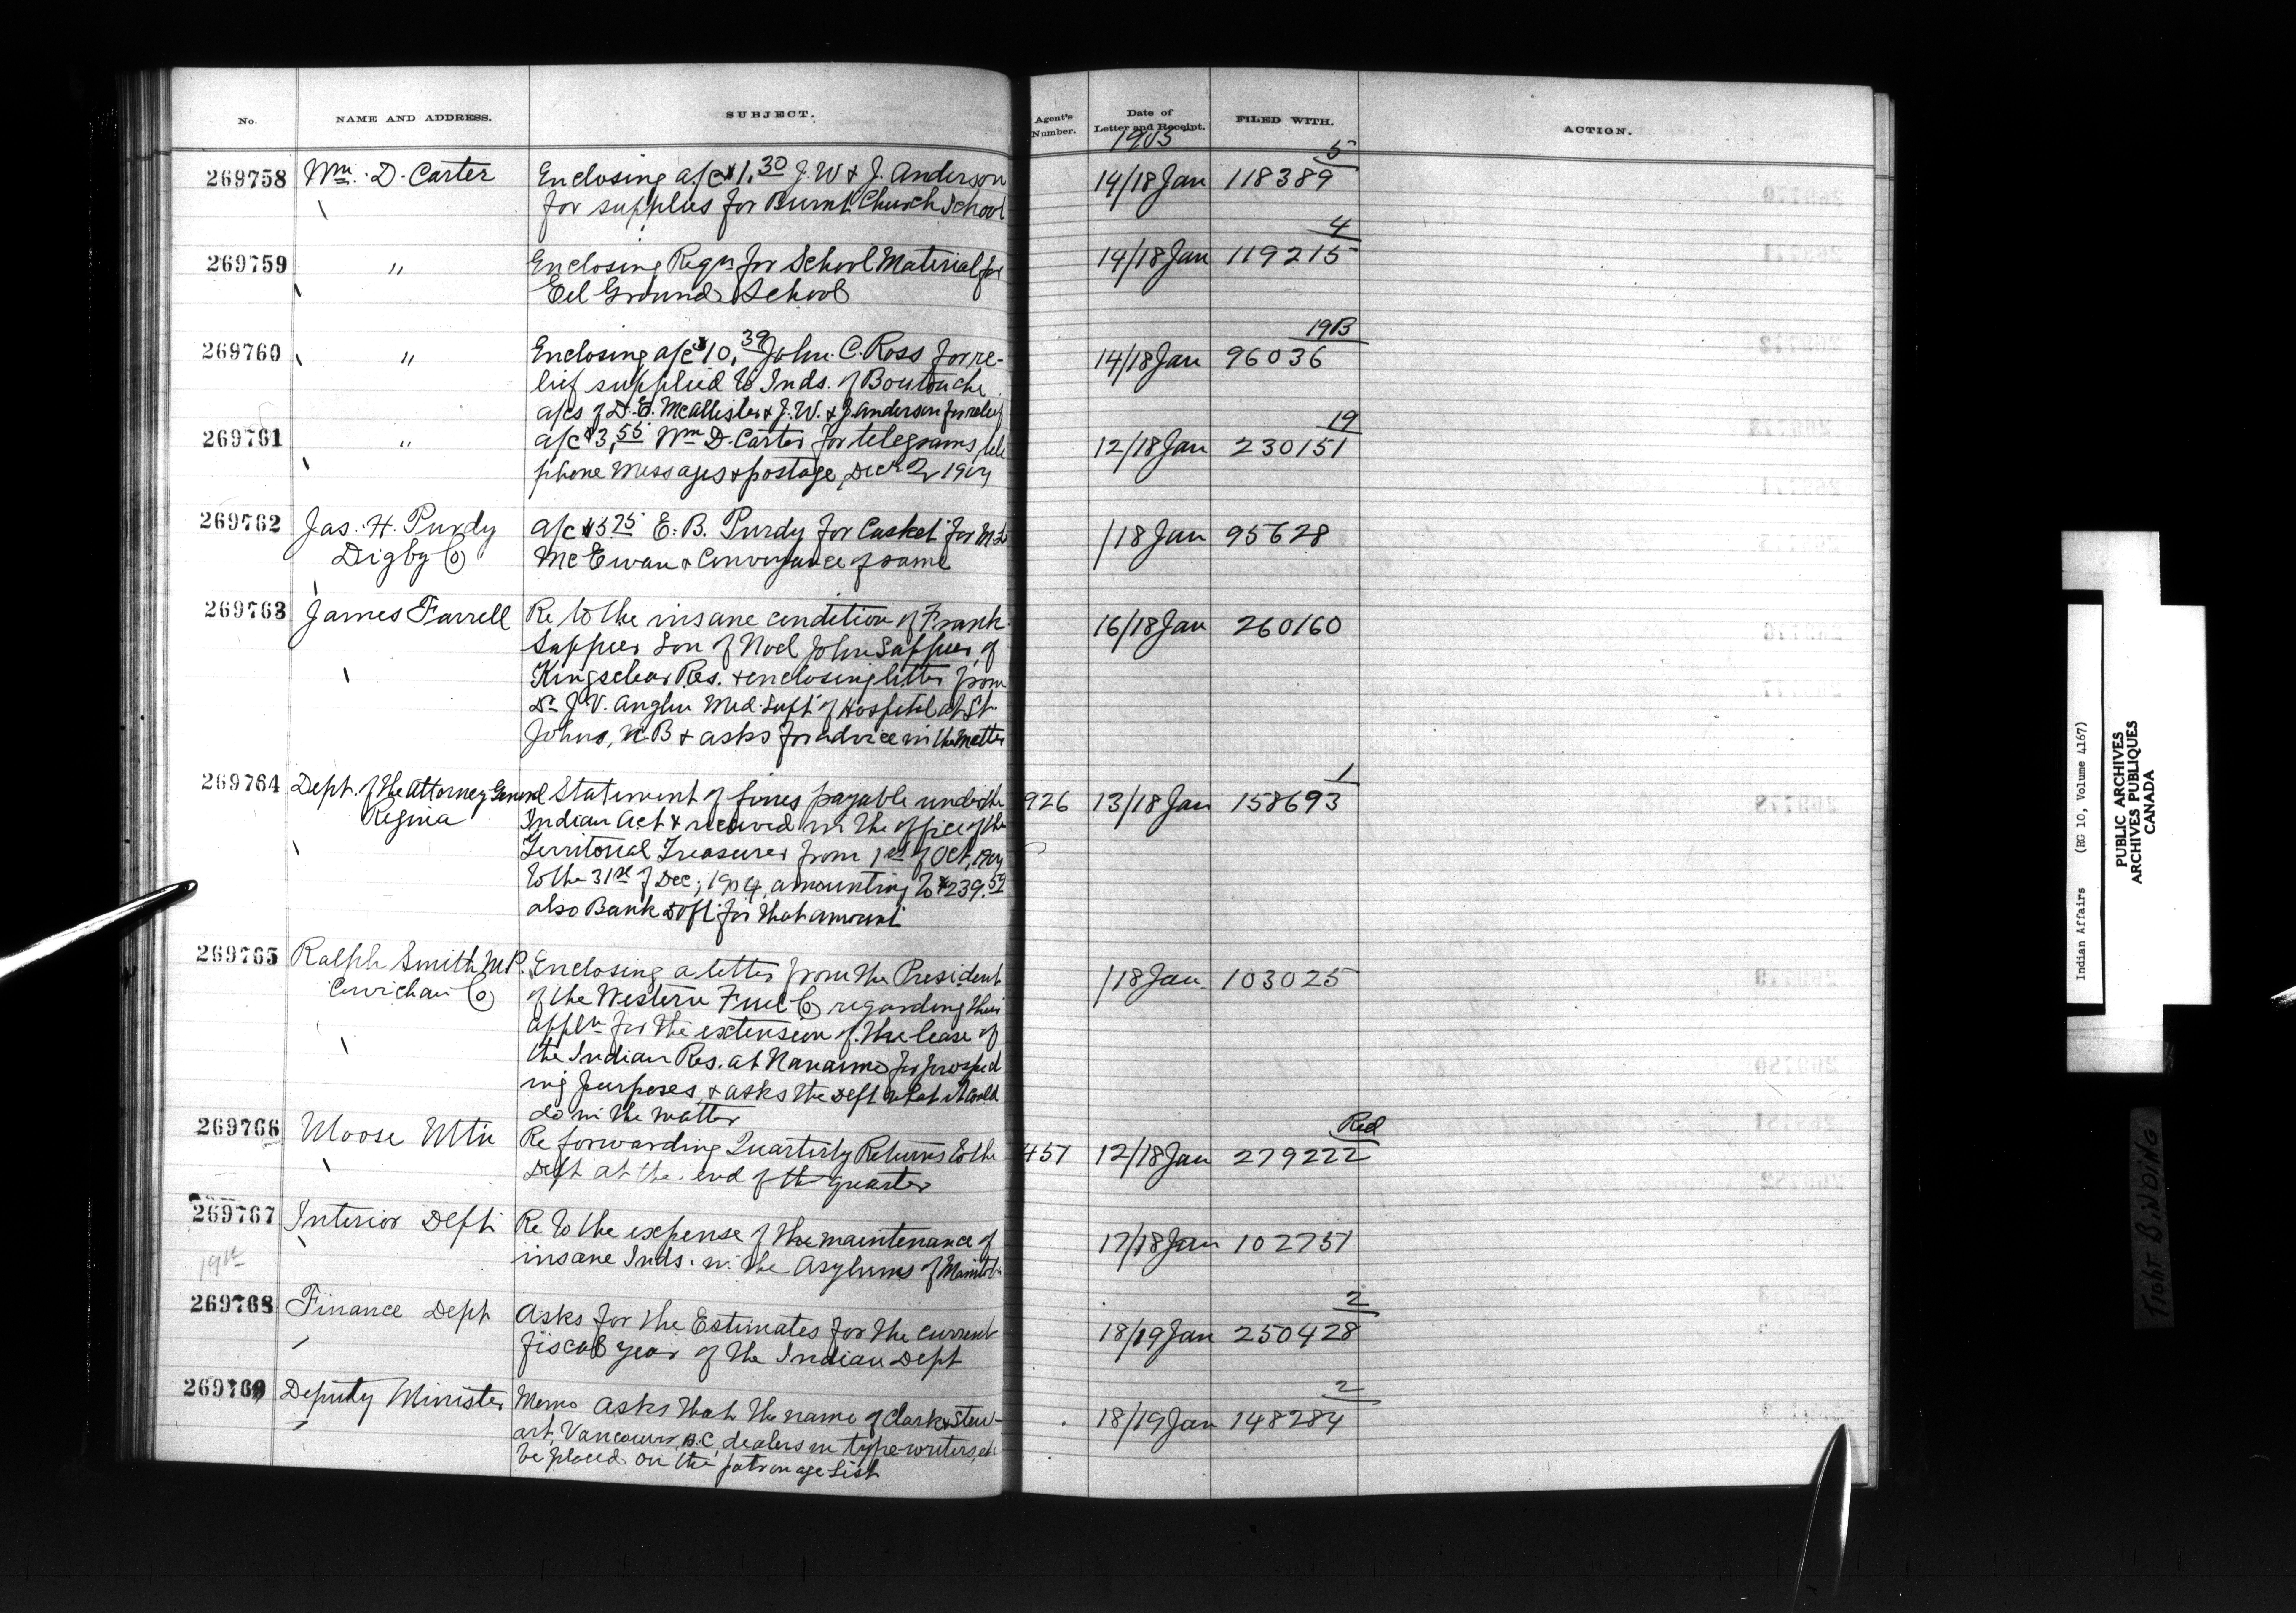 No. NAME AND ADDRESS. SUBJECT. Agent's Number. Date of Letter and Receipt. FILED WITH. ACTION.
1905
5
269758 Wm. D. Carter Enclosing a/c $1.30 J. W & J. Anderson 14/18 Jan 118389
for supplies for Burnt Church School
4
269759 " Enclosing Reqn for School Material for 14/18 Jan 119215
Eel Ground School
19B
269760 " Enclosing a/c $10.39 John C. Ross for re- 14/18 Jan 96036
lief supplied to Inds. of Boutouche
a/cs of D. E. McAllister & J. W. & J. Anderson for relief
19
269761 " a/c $3.55 Wm D. Carter for telegrams, tele 12/18 Jan 230151
phone messages & postage, Decr 2
269762 Jas. H. Purdy a/c $5 75 E. B. Purdy for Casket for /18 Jan 95628
Digby Co McEwan & Conveyance of same
269763 James Farrell Re to the insane condition of Frank 16/18 Jan 260160
Sappier Son of Noel John Sappier, of
Kingsclear Res. & enclosing letter from
Dr J. V. Anglin Med. Supt of Hospital at St.
Johns, N.B & asks for advice in the matter
1
269764 Dept. of the Attorney General Statement of fines payable under the 926 13/18 Jan 158693
Regina Indian Act & received in the office of the
Territorial Treasurer from 1st of Oct, 1904
to the 31st of Dec; 1904, amounting to $239.59
also Bank Dft for that amount
269765 Ralph Smith M.P. Enclosing a letter from the President /18 Jan 103025
Cowichan Co of the Western Fuel Co regarding their
appln for the extension of the lease of
the Indian Res. at Nanaimo for prospect
ing purposes, & asks the Dept what it could
do in the matter
Red
269766 Moose Mtn Re forwarding Quarterly Returns to the 457 12/18 Jan 279222
Dept at the end of the quarter
269767 Interior Dept Re to the expense of the maintenance of 17/18 Jan 102751
19th insane Inds. in the Asylums of Manitoba
2
269768 Finance Dept Asks for the Estimates for the current 18/19 Jan 250428
fiscal year of the Indian Dept
2
269769 Deputy Minister Memo asks that the name of Clark & Stew- 18/19 Jan 148284
art, Vancouver, B.C, dealers in type-writers, etc
be placed on the patronage list
Indian Affairs (RG 10, Volume 4167)
PUBLIC ARCHIVES
ARCHIVES PUBLIQUES
CANADA
TIGHT BINDING